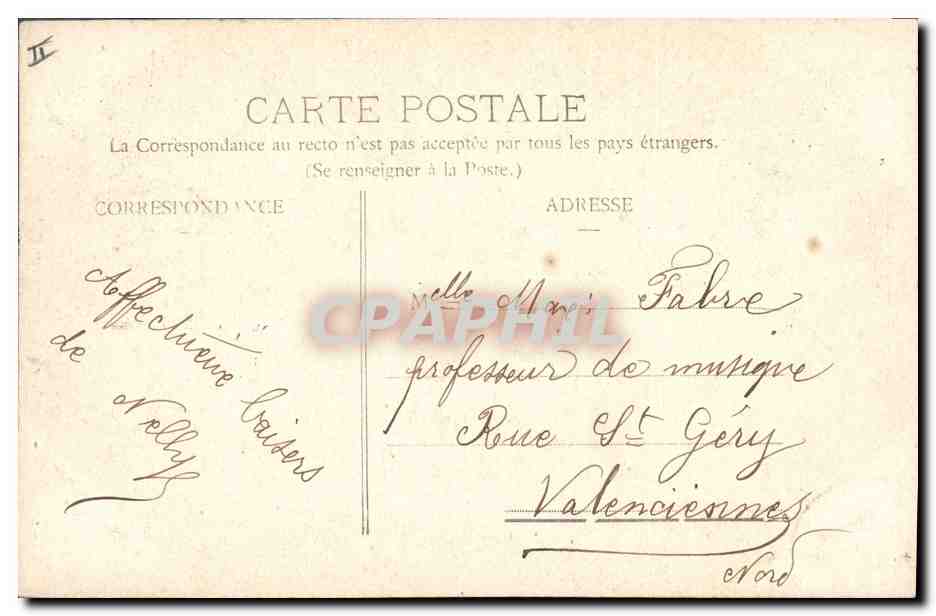 II
CARTE POSTALE
La Correspondance au recto n'est pas acceptée par tous les pays étrangers.
(Se renseigner à la Poste.)
CORRESPONDANCE
Affectueux baisers
de
Nelly
ADRESSE
Melle Fabre
professeur de musique
Rue St Géry
Valenciennes
Nord
CPAPHIL